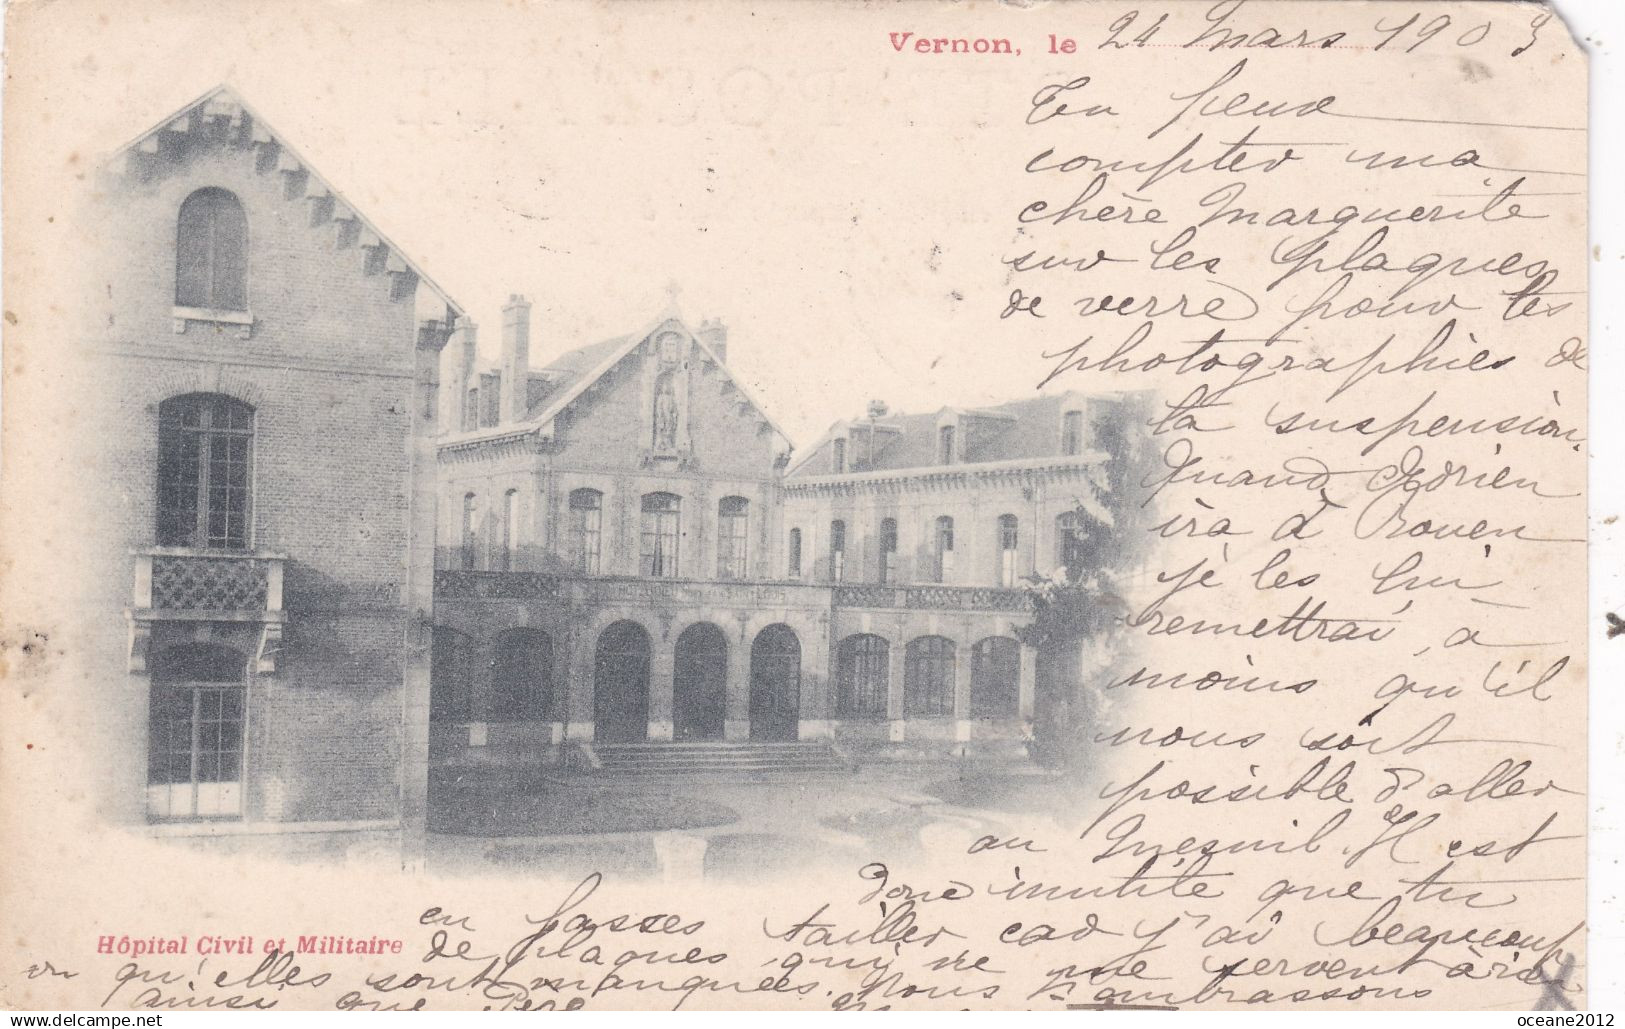 Vernon, le 24 Mars 1903
Tu peux
compter ma
chère Marguerite
sur les plaques
de verre pour les
photographies de
ta suspension.
Quand Adrien
ira à Rouen
je les lui
remettrai, à
moins qu'il
nous soit
possible d'aller
au Mesnil. Il est
donc inutile que tu
en fasses tailler car j'ai beaucoup
de plaques qui ne me servent à rien
vu qu'elles sont manquées. Nous t'embrassons
ainsi que Père
Hôpital Civil et Militaire
oceane2012